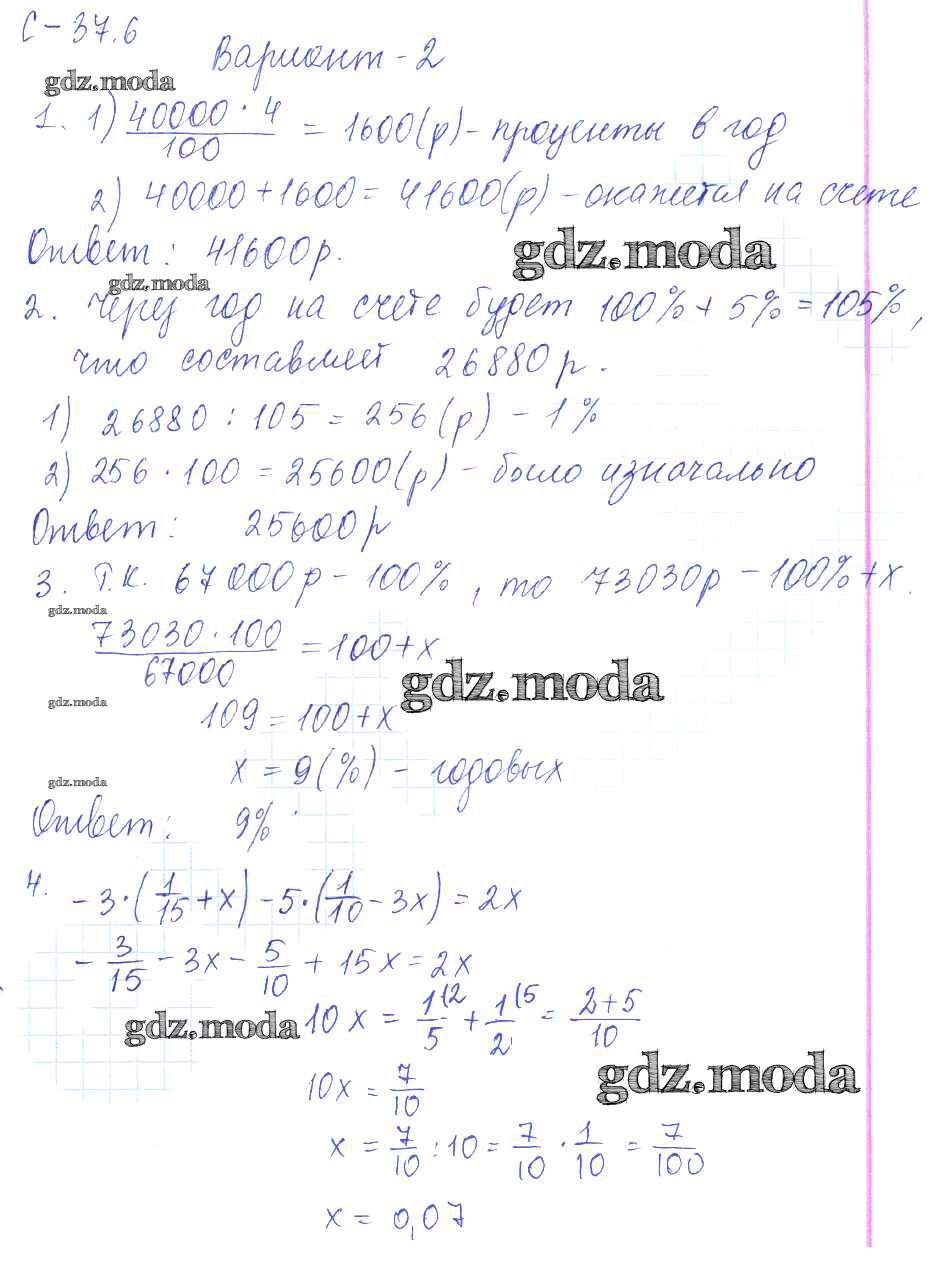 С-37.6
Вариант-2
gdz.moda
1. 1) 40000·4/100 = 1600(р) - проценты в год
2) 40000+1600 = 41600(р) - окажется на счете
Ответ: 41600р.
gdz.moda
gdz.moda
2. Через год на счете будет 100% + 5% = 105%,
что составляет 26880 р.
1) 26880 : 105 = 256 (р) - 1%
2) 256 · 100 = 25600(р) - было изначально
Ответ: 25600р
3. Т.к. 67000р - 100%, то 73030р - 100%+х.
gdz.moda
73030·100/67000 = 100+х
gdz.moda
gdz.moda
109 = 100+х
х = 9(%) - годовых
gdz.moda
Ответ: 9%
4. -3·(1/15+х) -5·(1/10 - 3х) = 2х
-3/15 - 3х - 5/10 + 15х = 2х
gdz.moda
10х = 1/5 (2 + 1/2 (5 = 2+5/10
gdz.moda
10х = 7/10
х = 7/10 : 10 = 7/10 · 1/10 = 7/100
х = 0,07